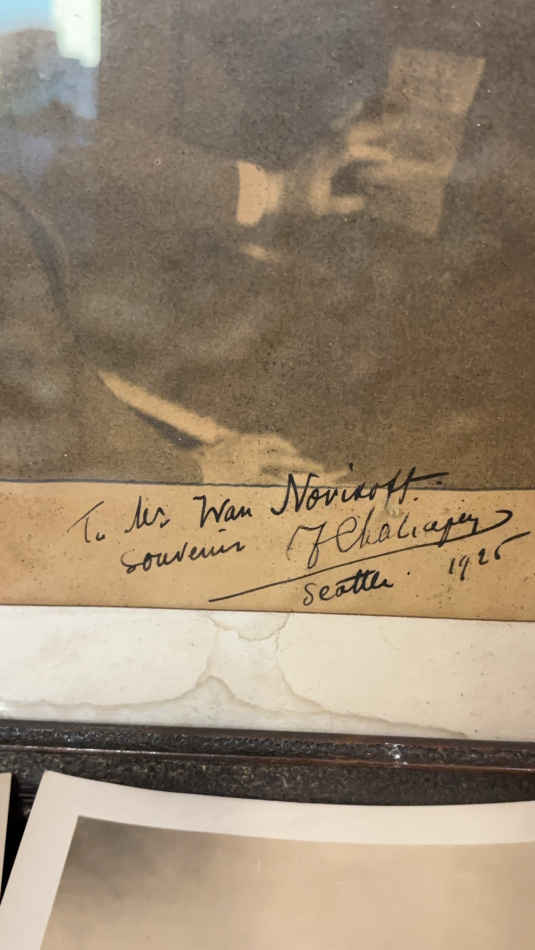 To Mr. Wan Novikoff.
Souvenir F Chaliapin
Seattle. 1925